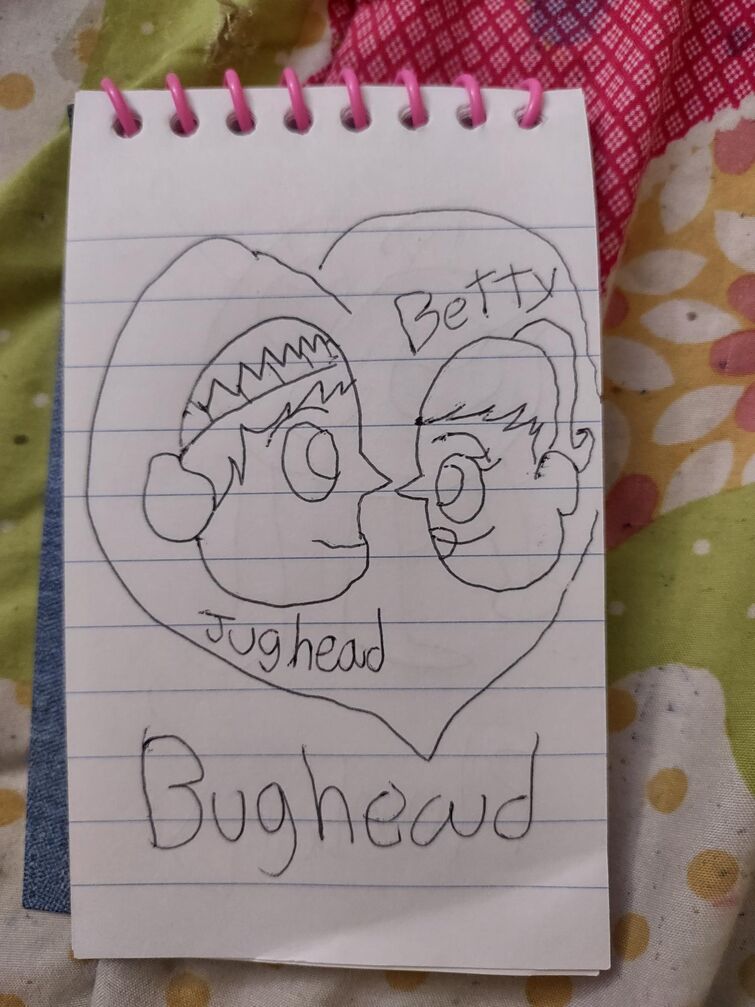 Betty
Jughead
Bughead